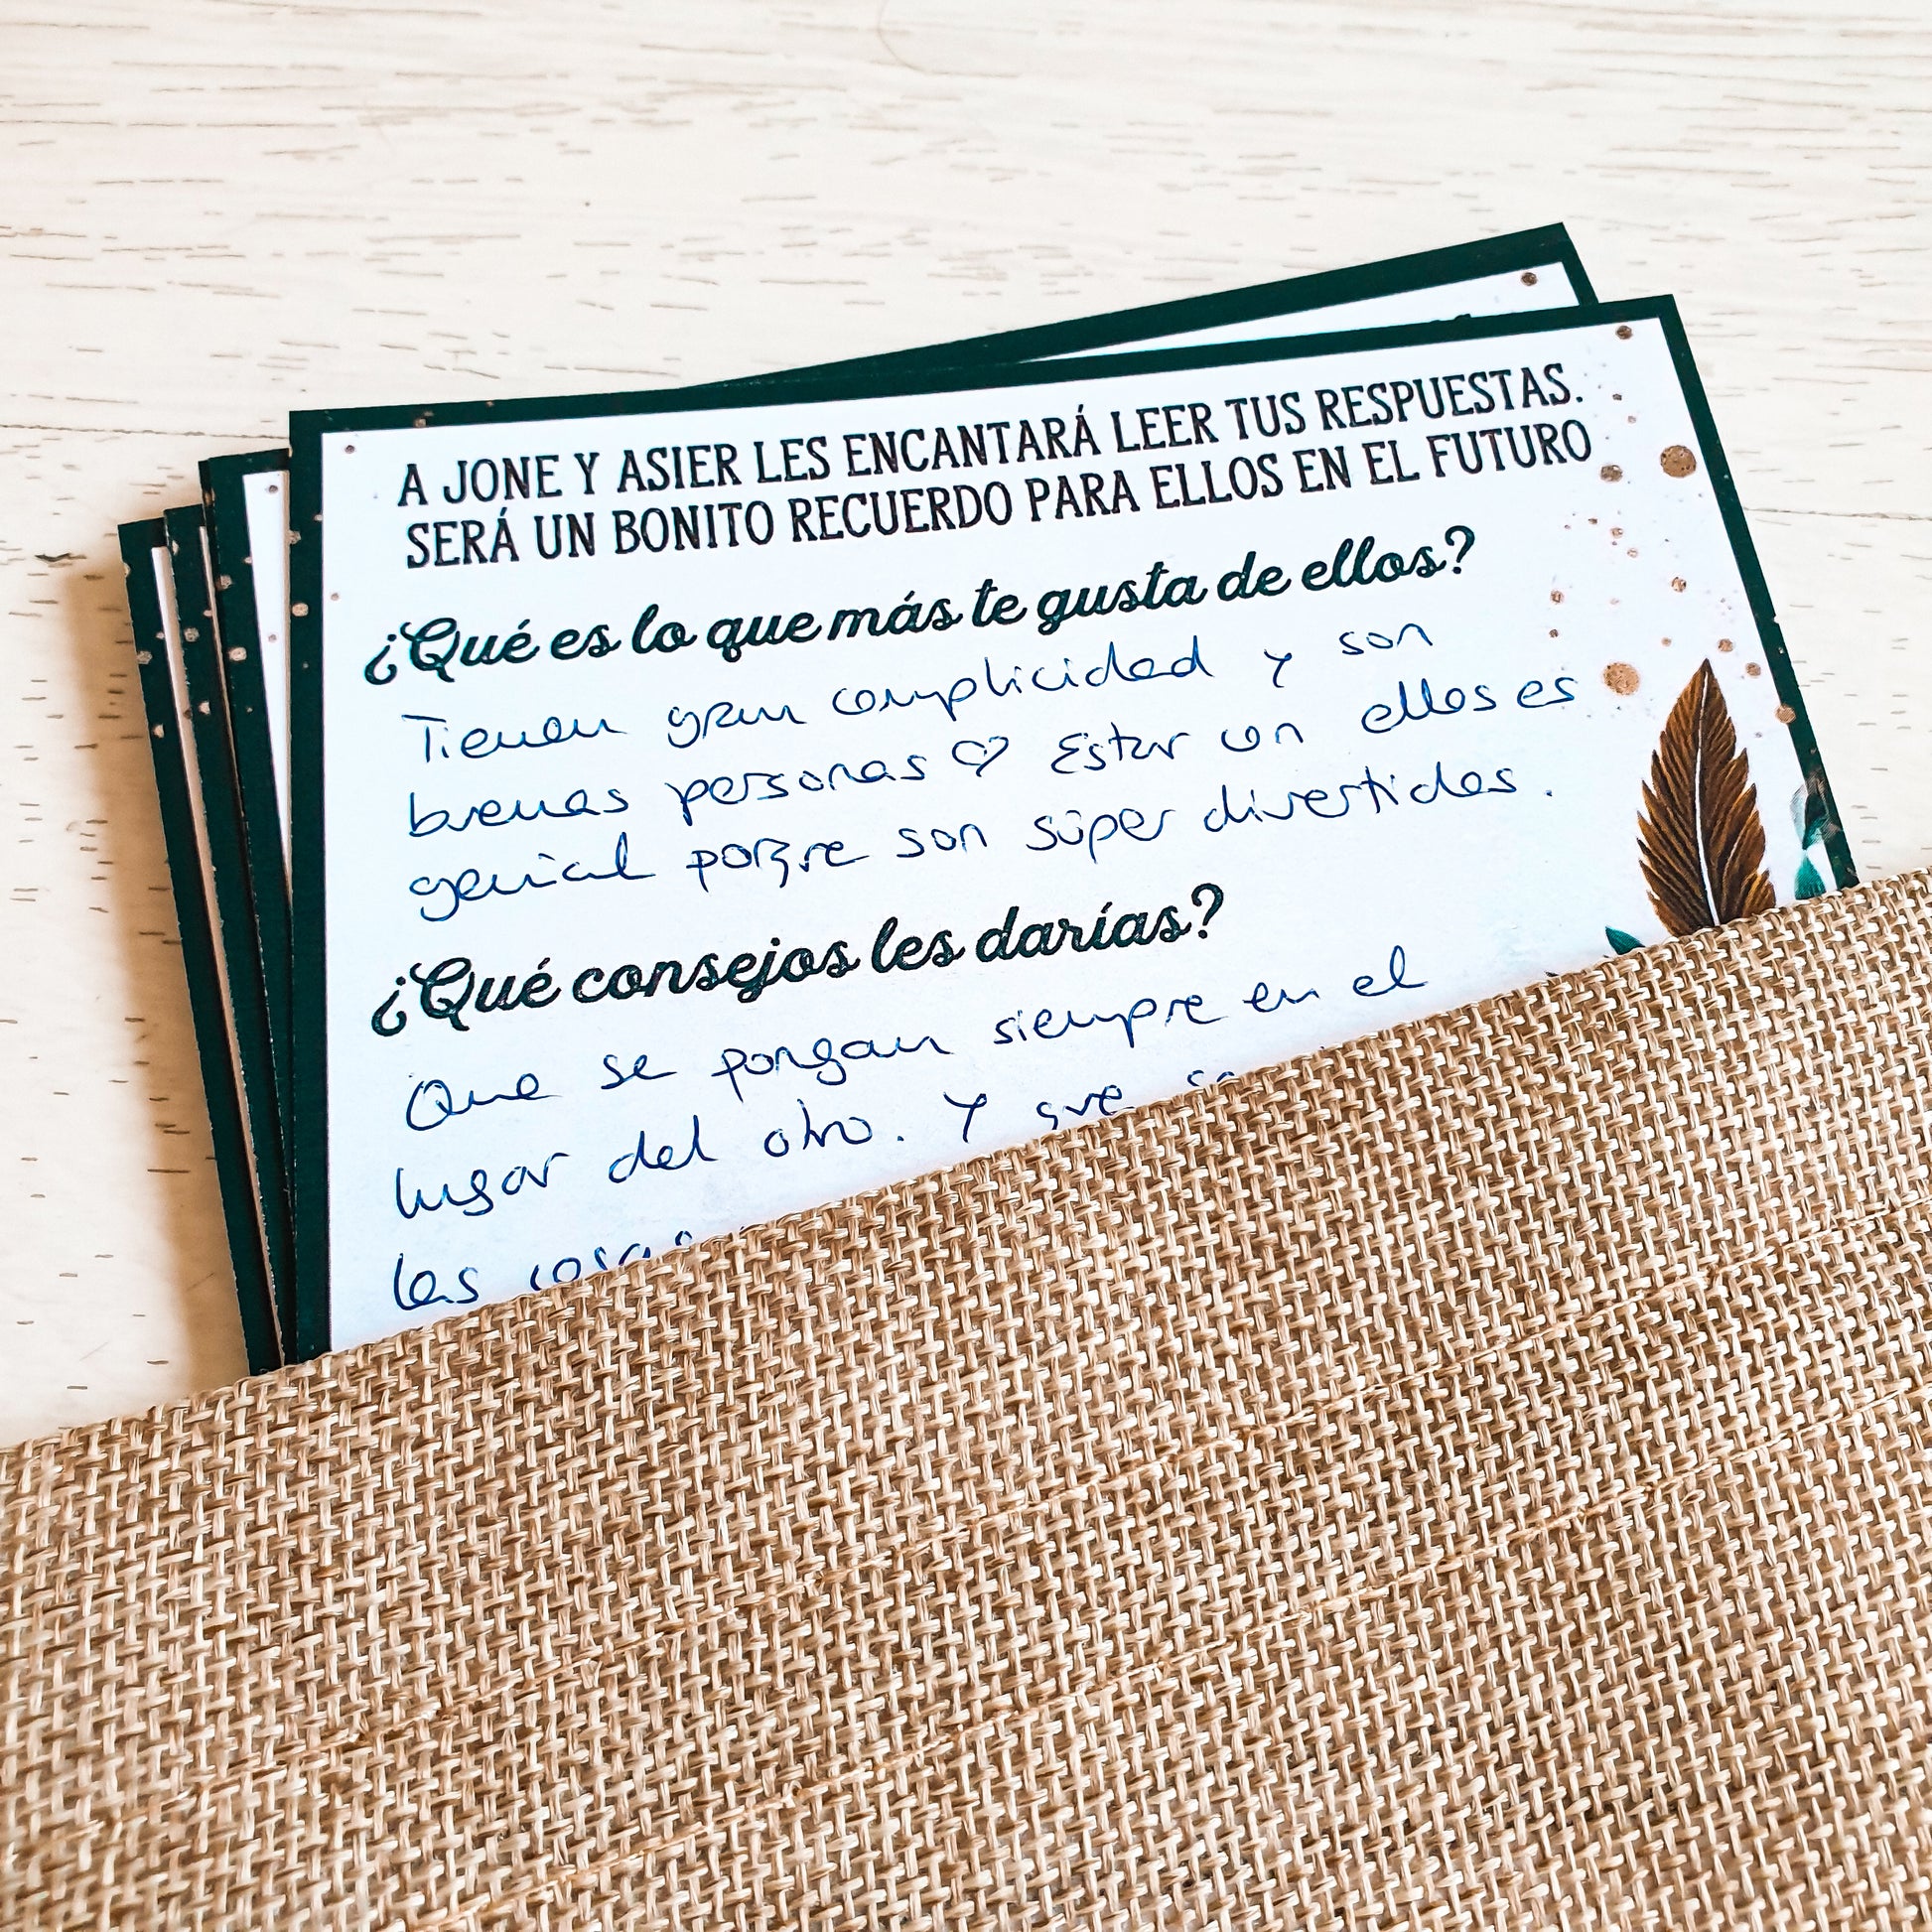 A JONE Y ASIER LES ENCANTARÁ LEER TUS RESPUESTAS.
SERÁ UN BONITO RECUERDO PARA ELLOS EN EL FUTURO
¿Qué es lo que más te gusta de ellos?
Tienen gran complicidad y son
buenas personas ♡ Estar con ellos es
genial porque son súper divertidos.
¿Qué consejos les darías?
Que se pongan siempre en el
lugar del otro. Y que
las cosas